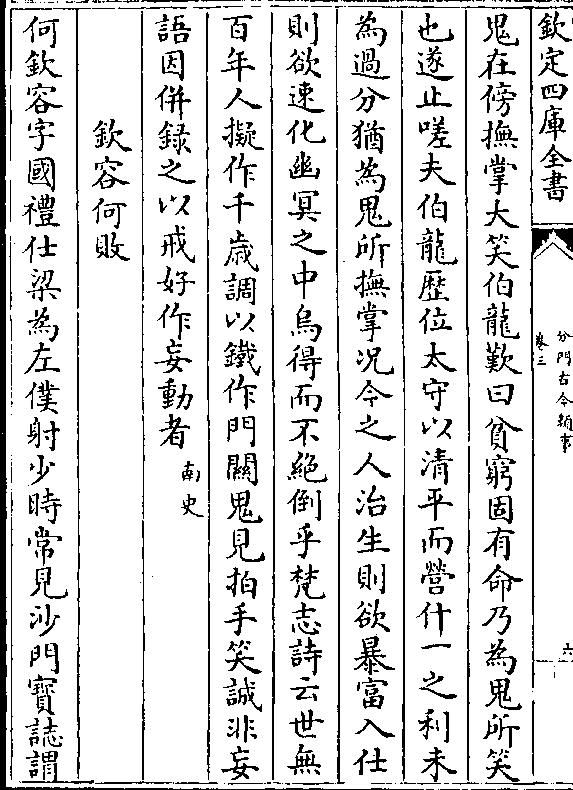 欽定四庫全書
分門古今類事
卷三
六
鬼在傍撫掌大笑伯龍歎曰貧窮固有命乃為鬼所笑
也遂止嗟夫伯龍歴位太守以清平而營什一之利未
為過分猶為鬼所撫掌况今之人治生則欲暴富入仕
則欲速化幽冥之中烏得而不絶倒乎梵志詩云世無
百年人擬作千歳調以鐵作門闗鬼見拍手笑誠非妄
語因併録之以戒好作妄動者
南史
欽容何敗
何欽容字國禮仕梁為左僕射少時常見沙門寳誌謂